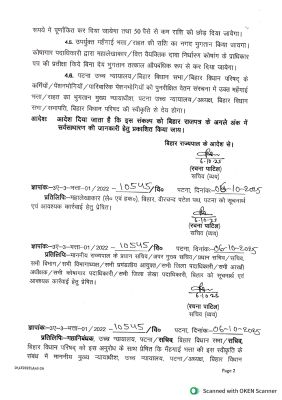 रूपये में पूर्णांकित कर दिया जायेगा तथा 50 पैसे से कम राशि को छोड़ दिया जायेगा।
4.5. उपर्युक्त महँगाई भत्ता/राहत की राशि का नगद भुगतान किया जायेगा।
कोषागार पदाधिकारी द्वारा महालेखाकार/वित्त वैयक्तिक दावा निर्धारण कोषांग के प्राधिकार
पत्र की प्रतीक्षा किये बिना देय भुगतान तत्काल औपबंधिक रूप से कर दिया जायेगा।
4.6. पटना उच्च न्यायालय/बिहार विधान सभा/बिहार विधान परिषद् के
कर्मियों/पेंशनभोगियों/पारिवारिक पेंशनभोगियों को पुनरीक्षित वेतन संरचना में उक्त महँगाई
भत्ता/राहत का भुगतान मुख्य न्यायाधीश, पटना उच्च न्यायालय/अध्यक्ष, बिहार विधान
सभा/सभापति, बिहार विधान परिषद् की स्वीकृति से देय होगा।
आदेशः आदेश दिया जाता है कि इस संकल्प को बिहार राजपत्र के अगले अंक में
सर्वसाधारण की जानकारी हेतु प्रकाशित किया जाय।
बिहार राज्यपाल के आदेश से।
6.10.25
(रचना पाटिल)
सचिव (व्यय)
ज्ञापांकः-3ए-3-भत्ता-01/2022 -10545/वि0 पटना, दिनांकः-06-10-2025
प्रतिलिपिः-महालेखाकार (ले० एवं हक०), बिहार, वीरचन्द पटेल पथ, पटना को सूचनार्थ
एवं आवश्यक कार्रवाई हेतु प्रेषित।
(रचना पाटिल)
सचिव (व्यय)
ज्ञापांकः-3ए-3-भत्ता-01/2022 -10545/वि0 पटना, दिनांकः-06-10-2025
प्रतिलिपिः-माननीय राज्यपाल के प्रधान सचिव/अपर मुख्य सचिव/प्रधान सचिव/सचिव,
सभी विभाग/सभी विभागाध्यक्ष/सभी प्रमंडलीय आयुक्त/सभी जिला पदाधिकारी/सभी आरक्षी
अधीक्षक/सभी कोषागार पदाधिकारी/सभी जिला लेखा पदाधिकारी, बिहार को सूचनार्थ एवं
आवश्यक कार्रवाई हेतु प्रेषित।
6.10.25
(रचना पाटिल)
सचिव (व्यय)
ज्ञापांकः-3ए-3-भत्ता-01/2022 -10545/वि0 पटना, दिनांकः-06-10-2025
प्रतिलिपिः-महानिबंधक, उच्च न्यायालय, पटना/सचिव, बिहार विधान सभा/सचिव,
बिहार विधान परिषद् को इस अनुरोध के साथ प्रेषित कि मँहगाई भत्ता की इस स्वीकृति के
संबंध में माननीय मुख्य न्यायाधीश, उच्च न्यायालय, पटना/अध्यक्ष, बिहार विधान
Page 2
Scanned with OKEN Scanner